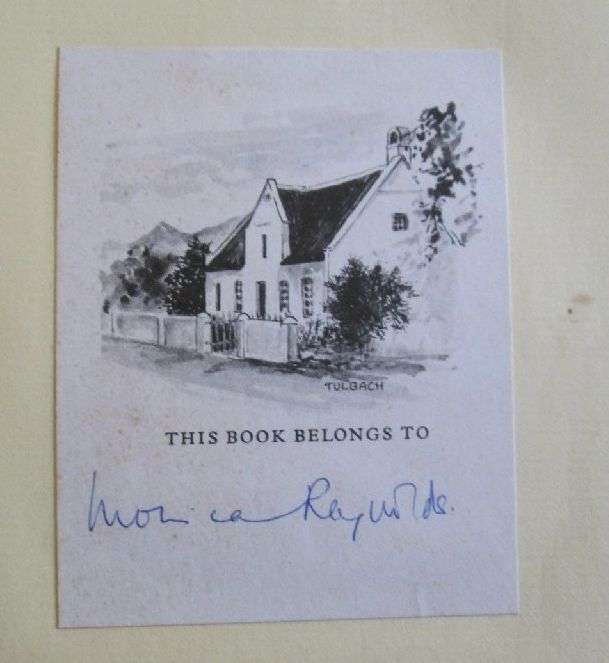 TULBACH
THIS BOOK BELONGS TO
Monica Reynolds.